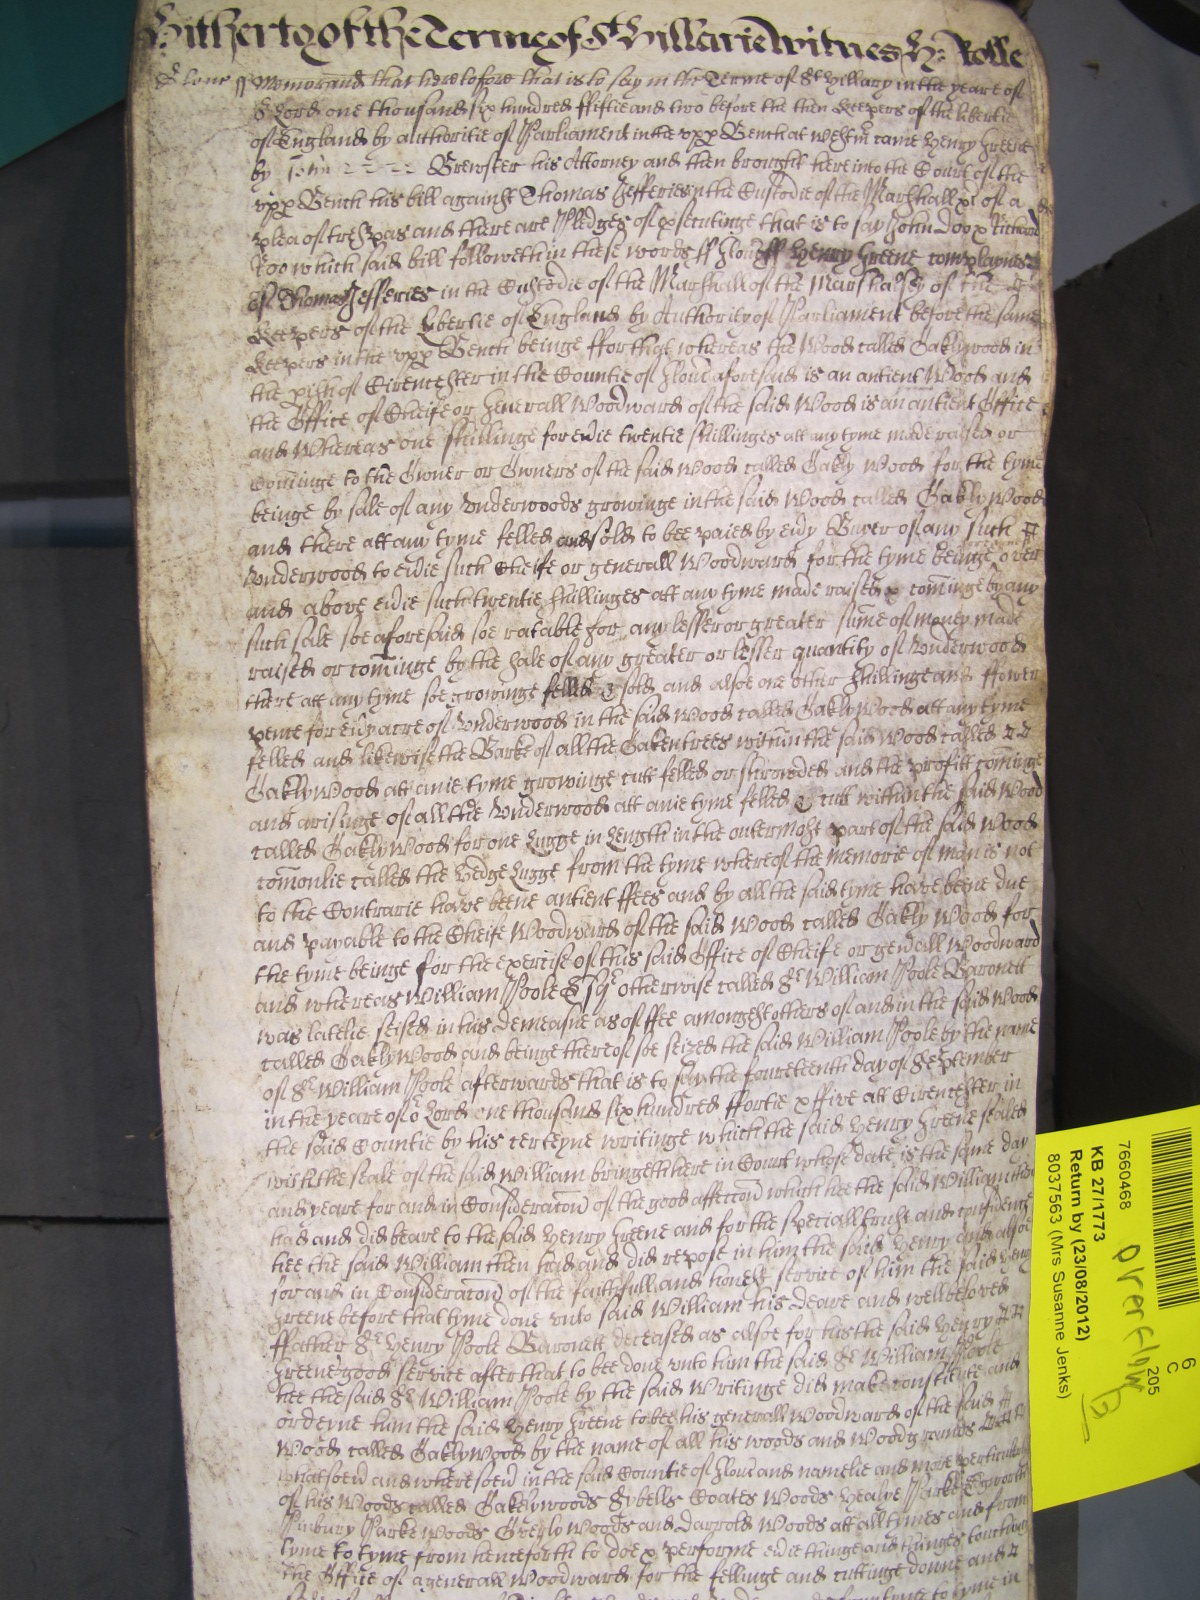 Hitherto of the Terme of St Hillarie witnes H: Rolle
Glouc ss Memorand that heretofore that is to say in the Terme of St Hillary in the yeare of
or Lord one thousand six hundred fiftie and two before the then Keepers of the libertie
of England by authoritie of Parliament in the upp Bench at Westm came Henry Greene
by John Brewster his Attorney and then brought here into the Court of the
upp Bench his bill against Thomas Jefferies in the Custodie of the Marshall &c of a
plea of trespas and there are Pledges of prosecutinge that is to say John Doo & Richard
Roo which said bill followeth in these words ss Glouc ss Henry Greene complaynes
of Thomas Jefferies in the Custodie of the Marshall of the Marshalsey of the
Keepers of the Libertie of England by Authority of Parliament before the same
Keepers in the upp Bench beinge ffor that whereas the Wood called Oaklywood in
the pish of Cirencester in the Countie of Glouc aforesaid is an antient Wood and
the Office of Cheife or Generall Woodward of the said Wood is an antient Office
and Whereas one shillinge for evie twentie shillinges att any tyme made raised or
cominge to the Owner or Owners of the said Wood called Oakly Wood for the tyme
beinge by sale of any Underwoods growinge in the said Wood called Oakly Wood
and there att any tyme felled and sold to bee paied by evy Buyer of any such
Underwood to evie such Cheife or generall Woodward for the tyme beinge over
and above evie such twentie shillinges att any tyme made raised & cominge by any
such sale soe aforesaid soe ratable for any lesser or greater sume of money made
raised or cominge by the sale of any greater or lesser quantity of Underwood
there att any tyme soe growinge felled & sold and alsoe one other shillinge and ffower
pence for evy acre of Underwood in the said Wood called Oakly Wood att any tyme
felled and likewise the Barke of all the Oaken trees within the said Wood called
Oakly Wood att anie tyme growinge cutt felled or shrowded and the profitt cominge
and arisinge of all the Underwood att anie tyme felled & cutt within the said Wood
called Oakly Wood for one Lugge in Length in the outermost part of the said Wood
comonlie called the Hedge Lugge from the tyme whereof the memorie of man is not
to the Contrarie have beene antient ffees and by all the said tyme have beene due
and payable to the Cheife Woodward of the said Wood called Oakly Wood for
the tyme beinge for the exercise of this said Office of Cheife or genall Woodward
and whereas William Poole Esqr otherwise called Sr William Poole Baronett
was latelie seised in his demeasne as of ffee amongest others of and in the said Wood
called Oakly Wood and beinge thereof soe seized the said William Poole by the name
of Sr William Poole afterwards that is to say the fourteenth day of September
in the yeare of or Lord one thousand six hundred ffortie & ffive att Cirencester in
the said Countie by his certeyne writinge which the said Henry Greene sealed
with the seale of the said William bringeth here in Court whose date is the same day
and yeare for and in Consideracon of the good affeccon which hee the said William then
had and did beare to the said Henry Greene and for the speciall trust and confidence
hee the said William then had and did repose in him the said Henry and alsoe
for and in Consideracon of the faithfull and honest service of him the said Henry
Greene before that tyme done unto said William his Deare and wellbeloved
ffather Sr Henry Poole Baronett deceased as alsoe for his the said Henry
Greene good service after that to bee done unto him the said Sr William Poole
hee the said Sr William Poole by the said Writinge did make constitute and
ordeyne him the said Henry Greene to bee his generall Woodward of the said
Wood called Oakly Wood by the name of all his woods and Wood grounds
whatsoevr and wheresoevr in the said Countie of Glouc and namelie and more perticularly
of his Woods called Oaklywoods Coates Woods Parke
Pinbury Parke Woods Woods and Woods att all tymes and from
tyme to tyme from henceforth to doe & performe evie thinge and thinges touching
the Office of a generall Woodward for the fellinge and cuttinge downe and
tyme to tyme in
7660468
KB 27/1773
Return by (23/08/2012)
8037563 (Mrs Susanne Jenks)
overflow
6
C
205